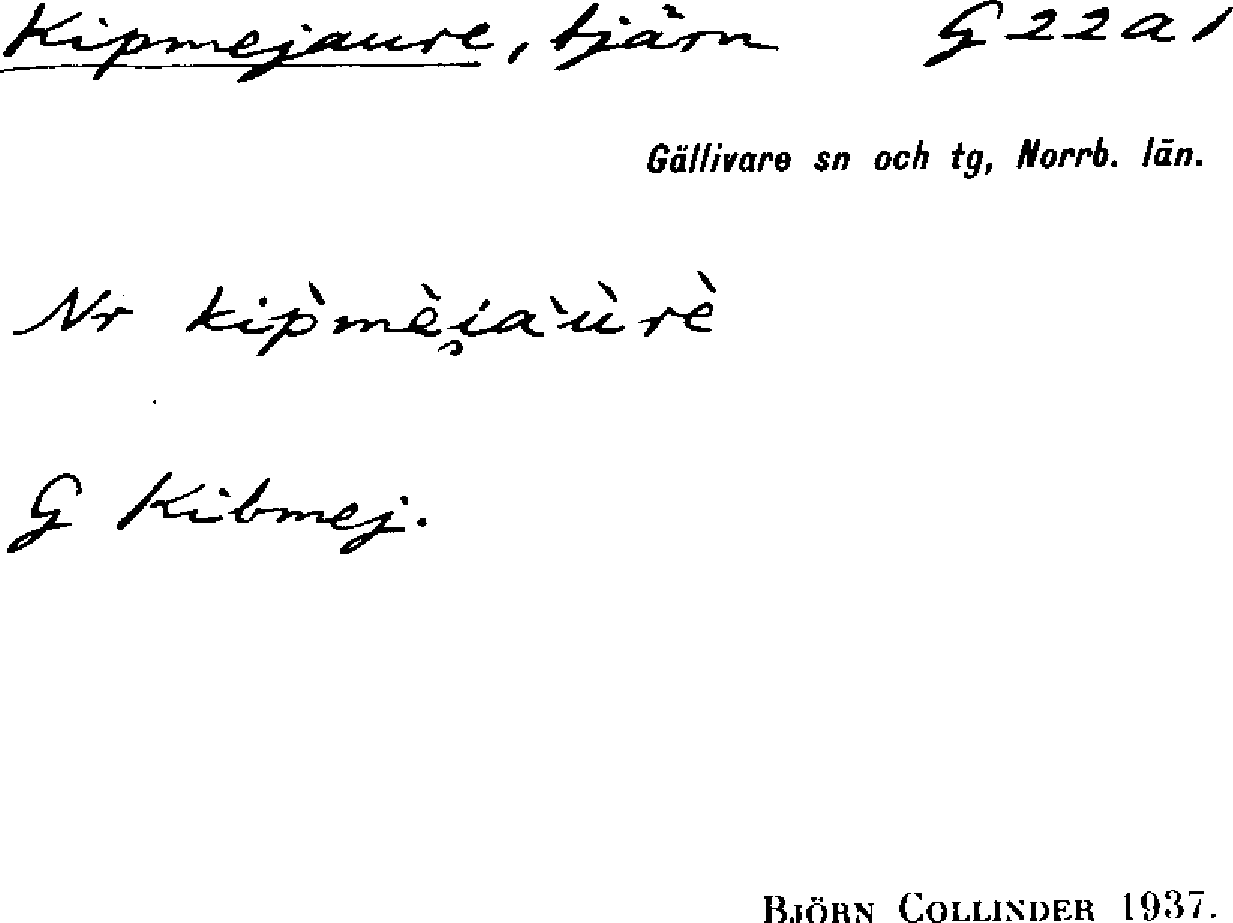 Kipmejaure, tjärn G22a1
Gällivare sn och tg, Norrb. län.
Nr kip̀mèi̯a`ùrè
G Kibmej.
BJÖRN COLLINDER 1937.